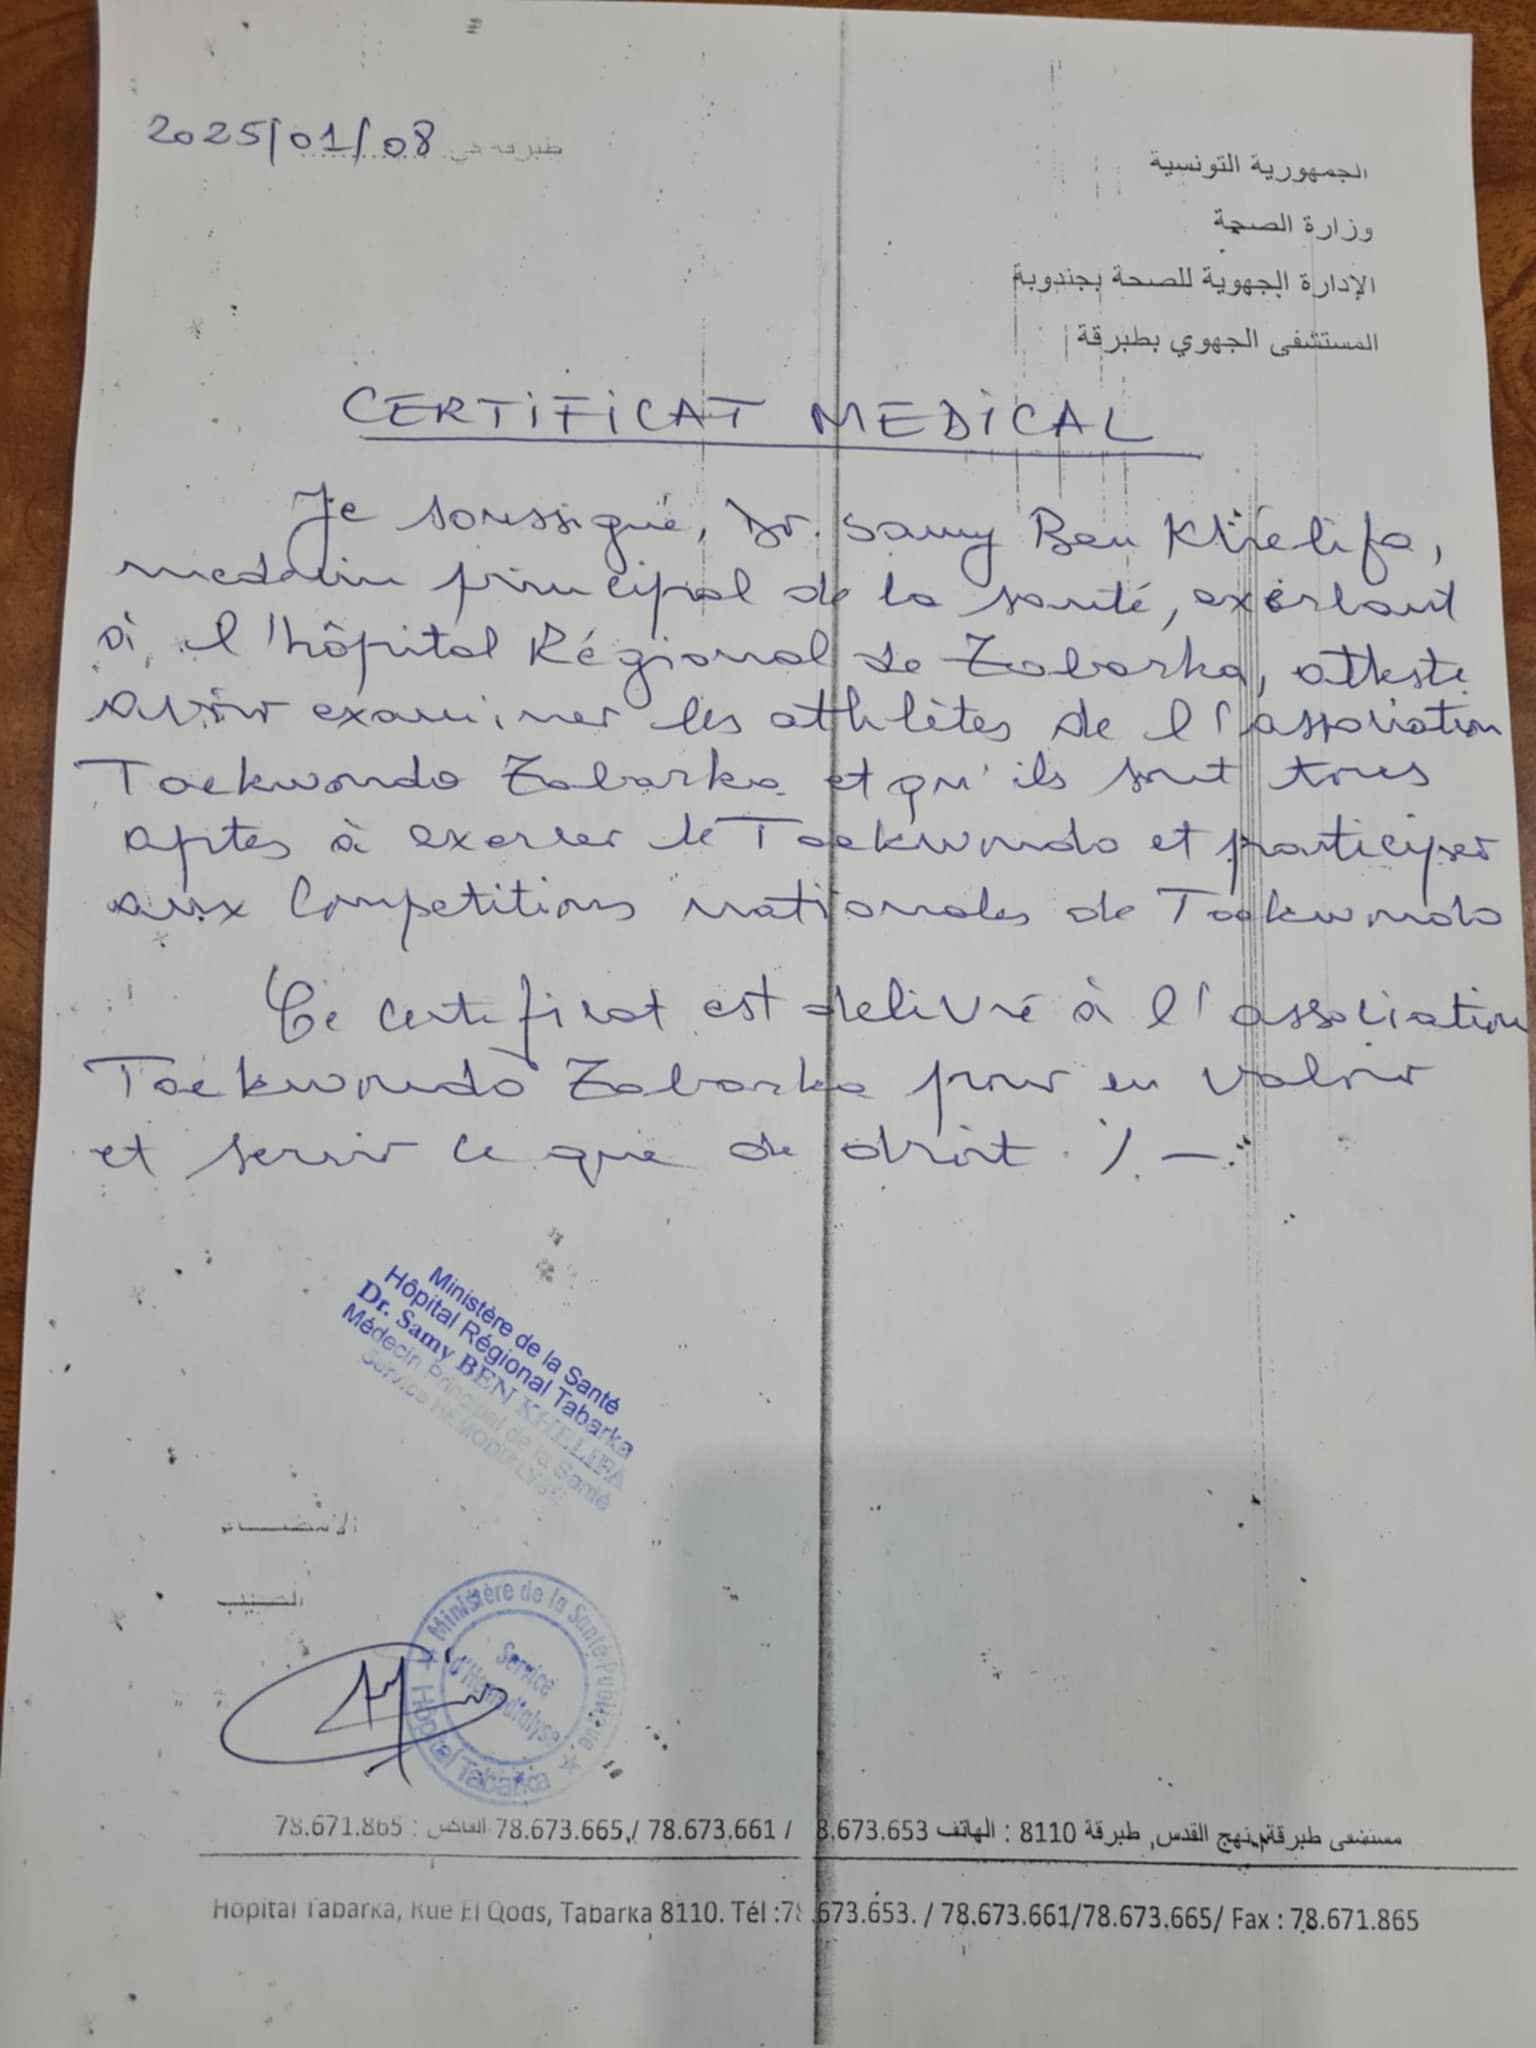 2025/01/08 طبرقة في
الجمهورية التونسية
وزارة الصحة
الإدارة الجهوية للصحة بجندوبة
المستشفى الجهوي بطبرقة
CERTIFICAT MEDICAL
Je soussigné, Dr. Samy Ben Khélifa,
medecin principal de la santé, exerçant
à l'hôpital Régional de Tabarka, atteste
avoir examiner les athlètes de l'association
Taekwondo Tabarka et qu'ils sont tous
aptes à exercer le Taekwondo et participer
aux Competitions nationales de Taekwondo
Ce certificat est delivré à l'association
Taekwondo Tabarka pour en valoir
et servir ce que de droit ./. —
Ministère de la Santé
Hôpital Régional Tabarka
Dr. Samy BEN KHELIFA
Médecin Principal de la Santé
Service HEMODIALYSE
الإمضـــــاء
الطبيب
Ministère de la Santé Publique
Service
d'Hémodialyse
Hôpital Tabarka
مستشفى طبرقة, نهج القدس, طبرقة 8110 : الهاتف 8.673.653 / 78.673.661 / 78.673.665 الفاكس : 78.671.865
Hôpital Tabarka, Rue El Qods, Tabarka 8110. Tél :78.673.653. / 78.673.661/78.673.665/ Fax : 78.671.865